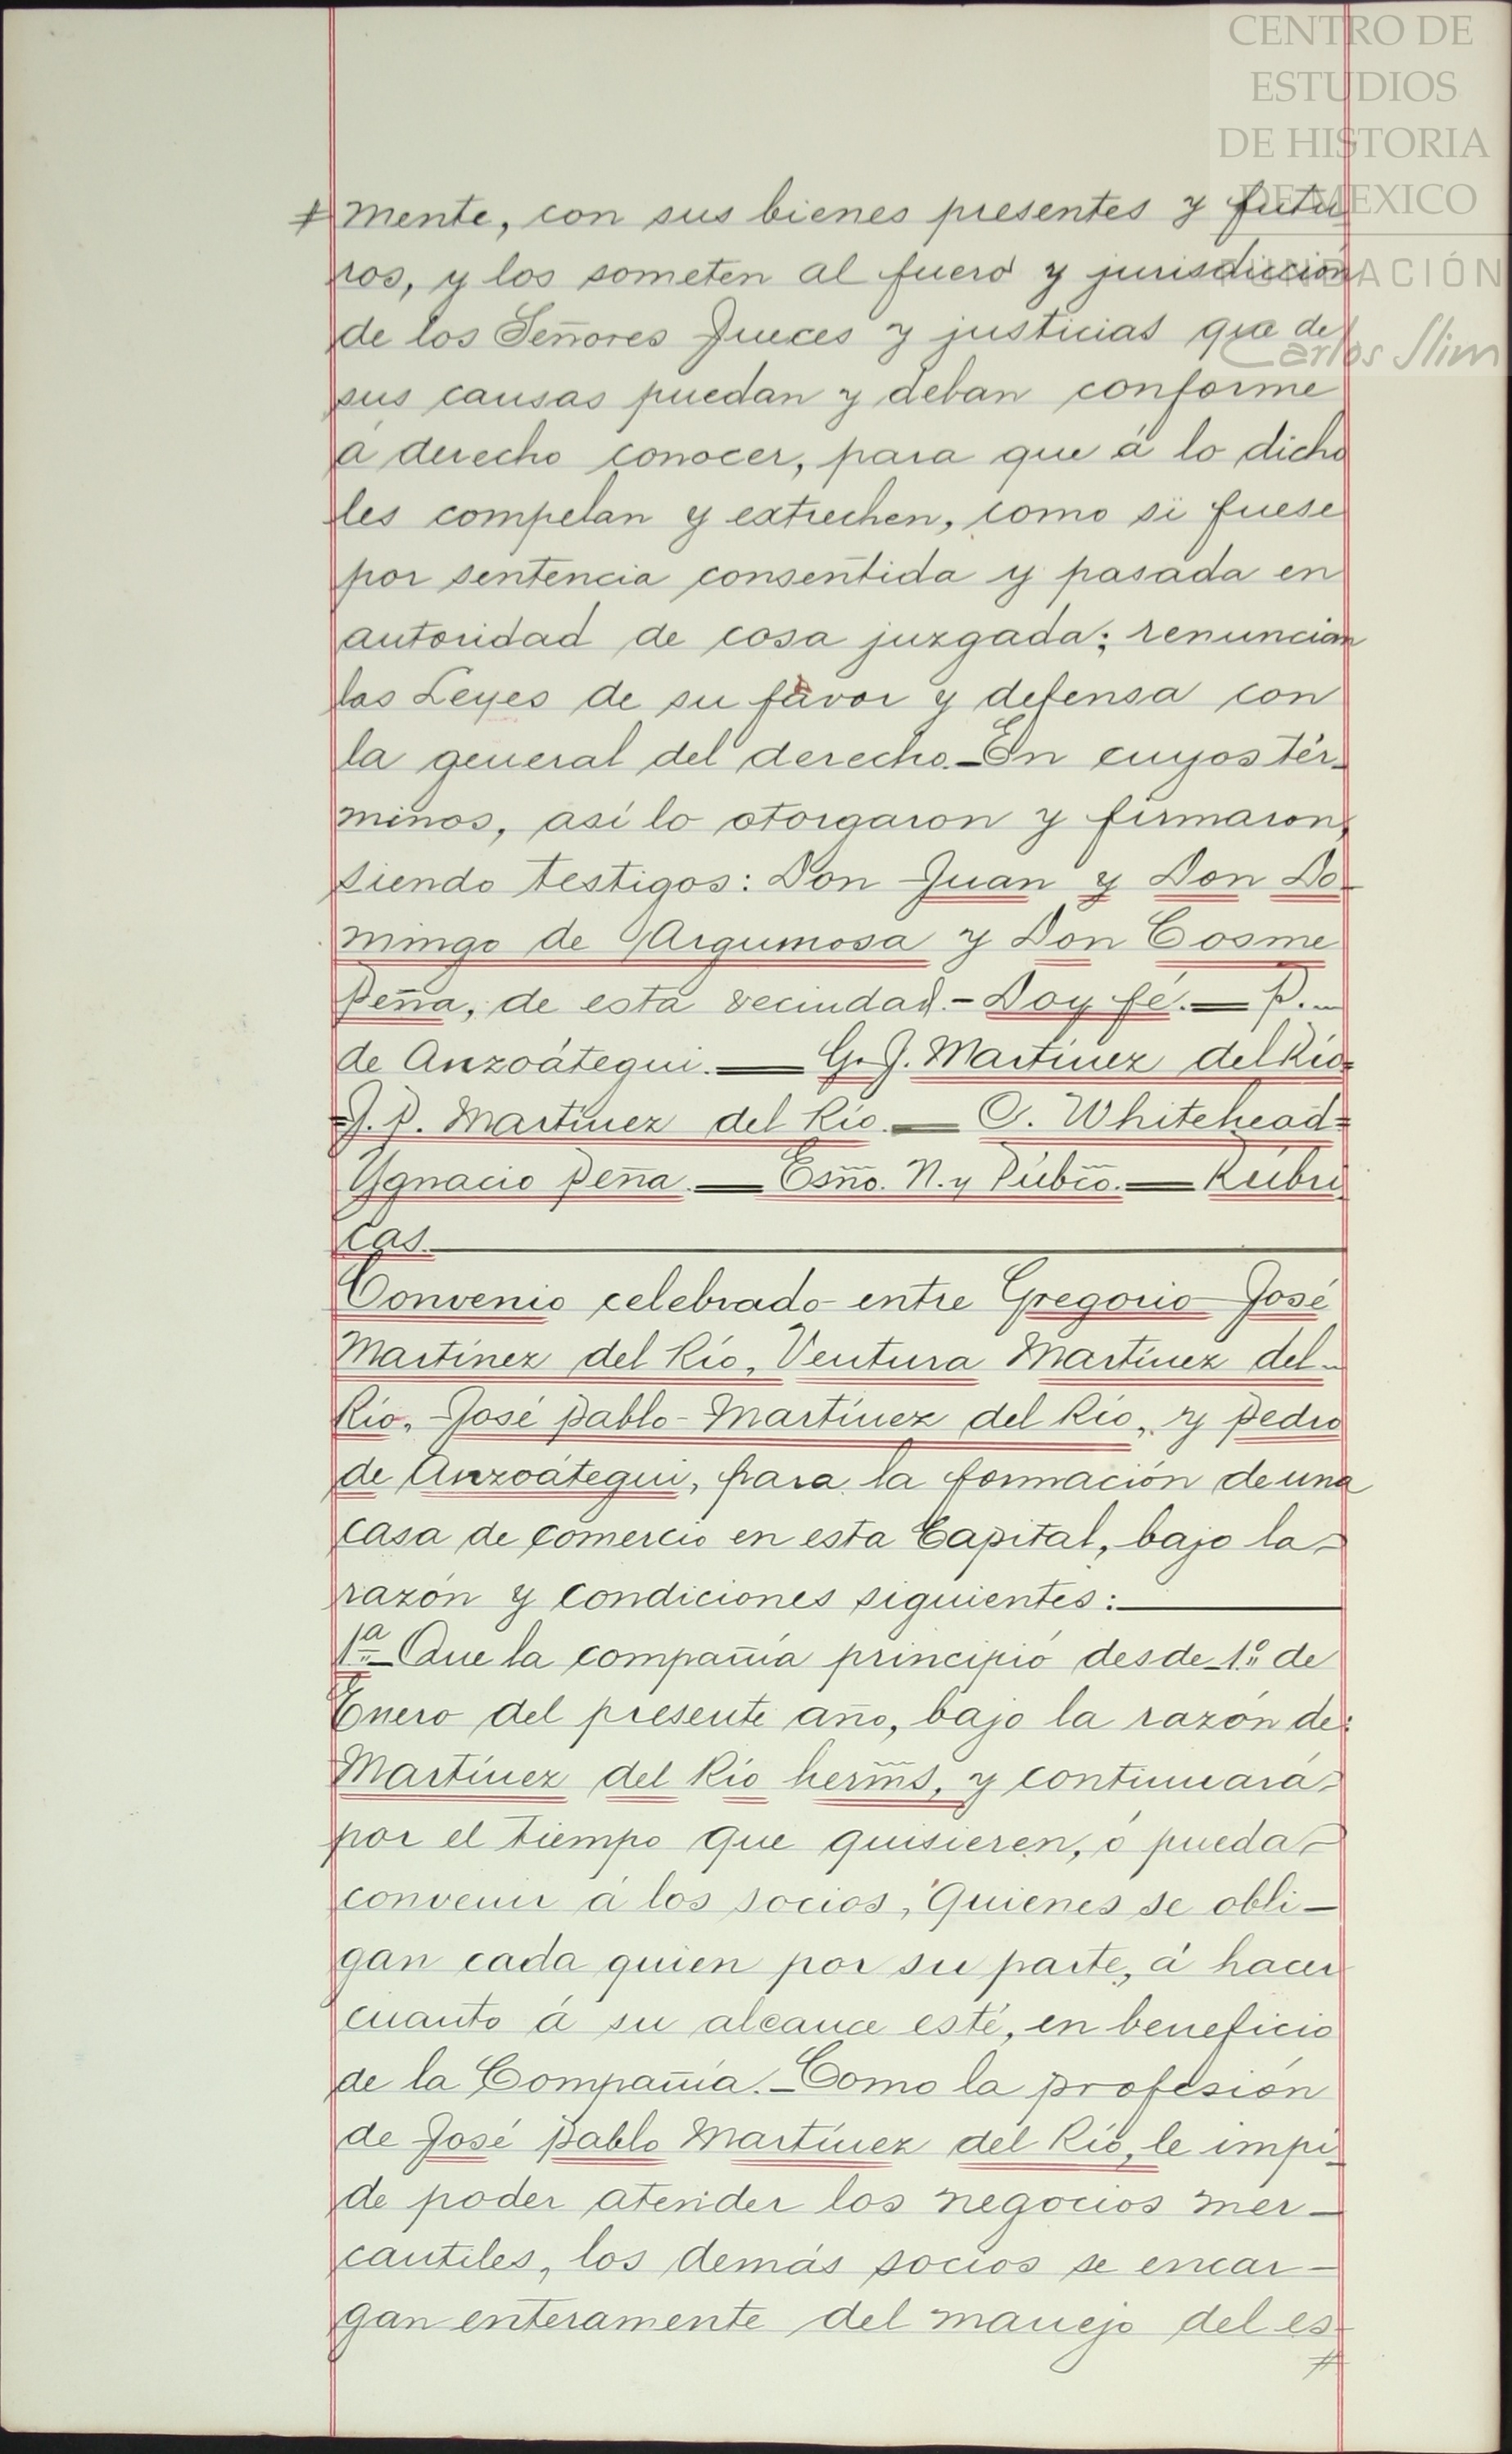 CENTRO DE
ESTUDIOS
DE HISTORIA
DE MEXICO
FUNDACIÓN
Carlos Slim
# mente, con sus bienes presentes y futu
ros, y los someten al fuero y jurisdiccion
de los Señores Jueces y justicias que de
sus causas puedan y deban conforme
á derecho conocer, para que á lo dicho
les compelan y extrechen, como si fuese
por sentencia consentida y pasada en
autoridad de cosa juzgada; renuncian
las Leyes de su favor y defensa con
la general del derecho.—En cuyos tér-
minos, así lo otorgaron y firmaron,
siendo testigos: Don Juan y Don Do-
mingo de Argumosa y Don Cosme
Peña, de esta vecindad.—Doy fé.—P.—
de Anzoátegui.—G. J. Martínez del Río=
J. P. Martínez del Río.—C. Whitehead=
Ygnacio Peña.—Esño. N. y Púbco.—Rúbri
cas.—
Convenio celebrado entre Gregorio José
Martínez del Río, Ventura Martínez del-
Río, José Pablo Martínez del Río, y Pedro
de Anzoátegui, para la formación de una
casa de comercio en esta Capital, bajo la-
razón y condiciones siguientes:—
1ª—Que la compañía principió desde 1º de
Enero del presente año, bajo la razón de:
Martínez del Río herms, y continuará-
por el tiempo que quisieren, ó pueda-
convenir á los socios, quienes se obli-
gan cada quien por su parte, á hacer
cuanto á su alcance esté, en beneficio
de la Compañía.—Como la profesión
de José Pablo Martínez del Río, le impi-
de poder atender los negocios mer-
cantiles, los demás socios se encar-
gan enteramente del manejo del es-
#